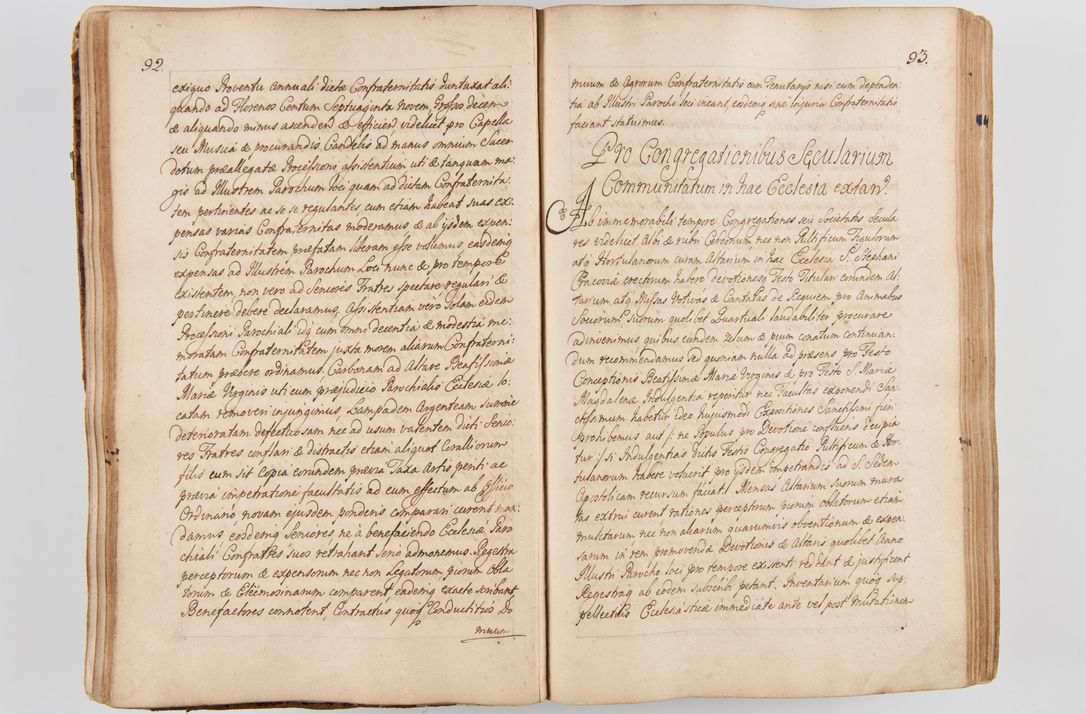 92.
exiguo Proventu annuali dictæ Confraternitatis duntaxat ali
quando ad Florenos Centum Septuaginta Novem, Grosso decem
& aliquando minus ascenden & efficien videlicet pro Capella
seu Musica & procurandis Candelis ad manus omnium Sacer
dotum præallegatæ Processioni assistentium uti & tanquam ma
gis ad Illustrem Parochum loci quam ad dictam Confraternita
tem pertinentes ac se se regulantes cum etiam habeat suas ex
pensas varias Confraternitas moderamus & ab ijsdem expen
sis Confraternitatem præfatam liberam esse volumus easdemq
expensas ad Illustrem Parochum Loci nunc & pro tempore
existentem, non vero ad Seniores Fratres spectare regulari &
pertinere debere declaramus, Assistentiam vero Solam eidem
Processioni Parochiali idq cum omni decentia & modestia me
moratam Confraternitatem juxta morem aliarum Confraterni
tatum præbere ordinamus. Carbonam ad Altare Beatissimæ
Mariæ Virginis uti cum præjudicio Parochialis Ecclesiæ lo
catam removeri injungimus, Lampadem Argenteam summe
deterioratam defectuosam nec ad usum valentem dicti Senio
res Fratres conflari & distractis etiam aliquot Coralliorum
filis cum sit Copia eorundem prævia Taxa Artis periti ac
prævia impetratione facultatis ad eum effectum ab Officio
Ordinario, novam ejusdem ponderis comparari curent man
damus eosdemq Seniores ne à benefaciendo Ecclesiæ Paro
chiali Confrattes suos retrahant serio admonemus. Regestra
perceptorum & expensorum nec non Legatorum, piorum obla
torum & Eleemosinarum comparent eademq exacte scribant
Benefactores connotent, Contractus quoq Conductitios Do
muum
93.
muum & Agrorum Confraternitatis cum Feautarijs nisi cum dependen
tia ab Illustri Parocho loci ineant eademq sine injuria Confraternitatis
faciant statuimus.
Pro Congregationibus Secularium
Communitatum in hac Ecclesia extan.
Ab immemorabili tempore Congregationes seu Societatis Secula
res videlicet Albi & rubri Cerdonum nec non Pultificum Figulorum
atq Hortulanorum curam Altarium in hac Ecclesia S. Stephani
Cracoviæ erectrum habere devotionesq Festo Titulari eorundem Al
tarium, atq Missas Votivas & Cantatas de Requiem pro Animabus
Sociorum Suorum quolibet Quartuali laudabiliter procurare
adinvenimus quibus eundem zelum & pium conatum continuan
dum recommendamus sed quoniam nulla ad præsens pro Festo
Conceptionis Beatissimæ Mariæ Virginis & pro Festo S. Mariæ
Magdalenæ Indulgentia reperitur nec Facultas exponendi San
ctissimum habetur ideo hujusmodi Expositiones Sanctissimi fieri
prohibemus aut /: ne Populus pro Devotione confluens decipia
tur :/ si Indulgentias dictis Festis Congregatio Pultificum & Hor
tulanorum habere voluerit pro ijsdem impetrandis ad S. Sedem
Apostolicam recursum faciat! Mensas Altarium suorum mura
tas extrui curent rationes perceptrum piorum oblatorum etiam
mulctarum nec non aliarum quarumvis obventionum & expen
sarum in rem promovendæ Devotionis & Altaris quolibet Anno
Illustri Parocho loci pro tempore existenti reddant & justificent
Regestraq ab eodem subscribi petant, Inventarium quoq sup
pellectilis Ecclesiasticæ immediate ante vel post mutationem